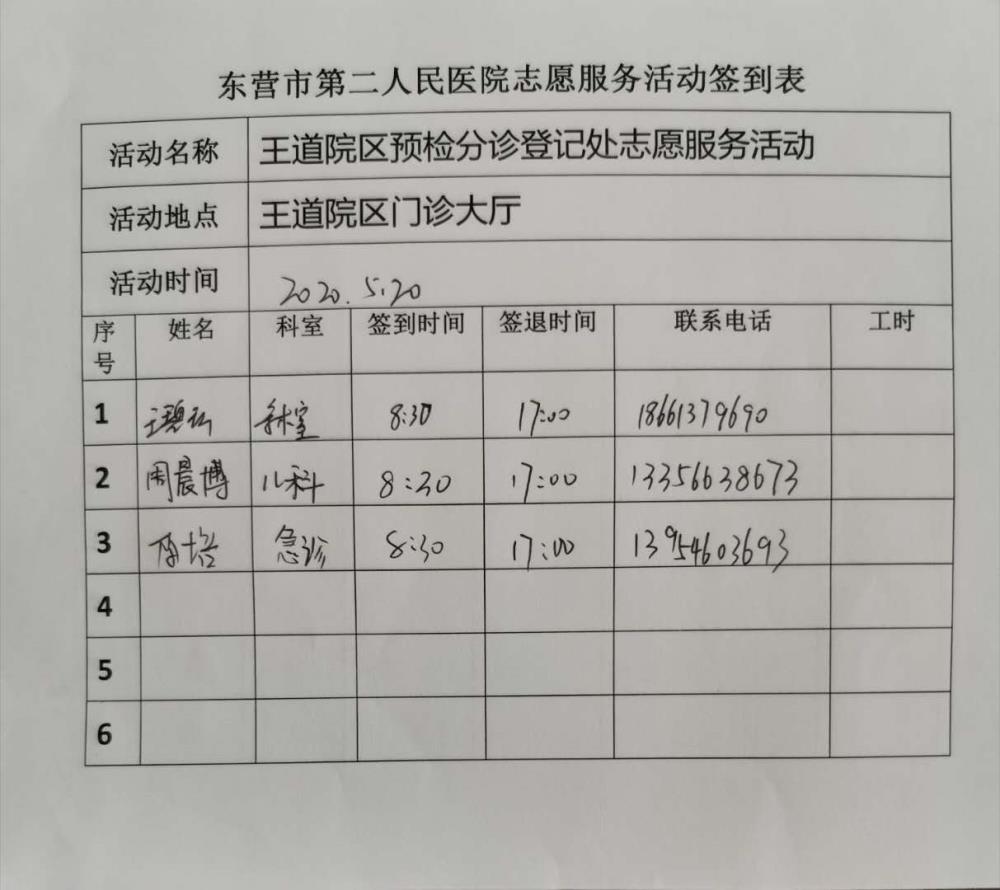 东营市第二人民医院志愿服务活动签到表
活动名称 王道院区预检分诊登记处志愿服务活动
活动地点 王道院区门诊大厅
活动时间 2020.5.20
序号 姓名 科室 签到时间 签退时间 联系电话 工时
1 8:30 17:00 18661379690
2 周晨博 儿科 8:30 17:00 13356638673
3 急诊 8:30 17:00 13954603693
4
5
6